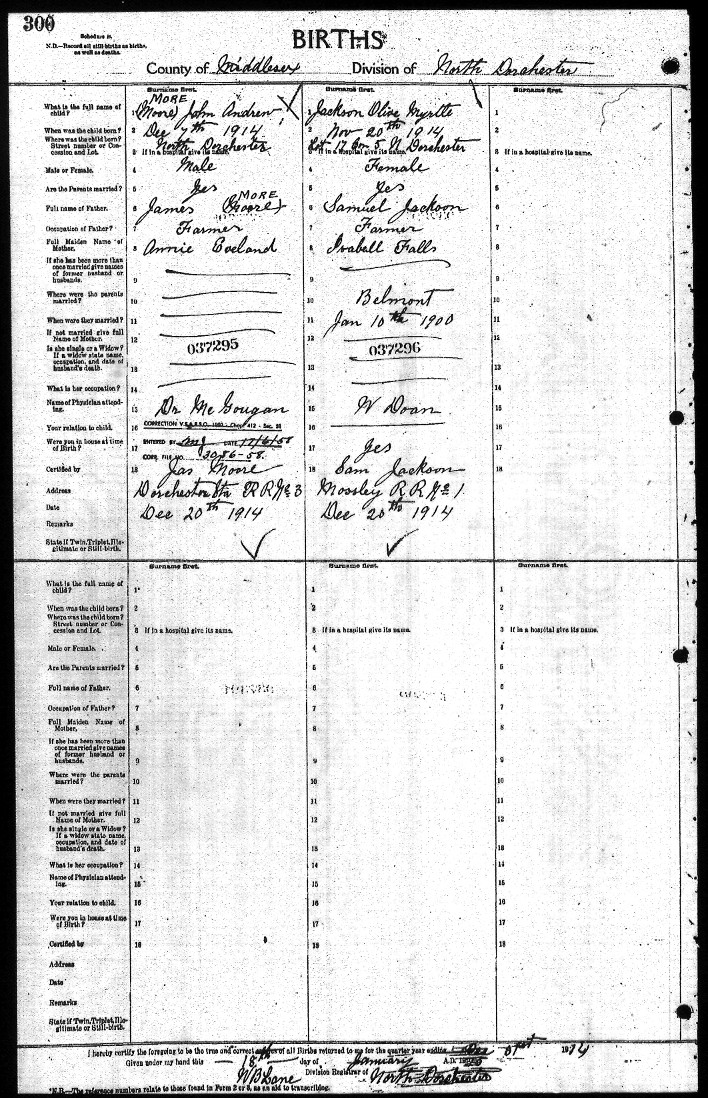 300
Schedule B.
N.B.—Record all still births as births,
as well as deaths.
BIRTHS
County of Middlesex Division of North Dorchester
Surname first. Surname first. Surname first.
MORE
What is the full name of child? (Moore) John Andrew Jackson Olive Myrtle 1
When was the child born? 2 Dec 4th 1914 2 Nov 20th 1914 2
Where was the child born? Street number or Concession and Lot. 3 If in a hospital give its name. North Dorchester 3 If in a hospital give its name. Lot 17 Con 5 N Dorchester 3 If in a hospital give its name.
Male or Female. 4 Male 4 Female 4
Are the Parents married? 5 Yes 5 Yes 5
MORE
Full name of Father. 6 James (Moore) 6 Samuel Jackson 6
Occupation of Father? 7 Farmer 7 Farmer 7
Full Maiden Name of Mother. 8 Annie 8 Falls 8
If she has been more than once married give names of former husband or husbands. 9 9 9
Where were the parents married? 10 10 Belmont 10
When were they married? 11 11 Jan 10th 1900 11
If not married give full Name of Mother. 12 12 12
037295 037296
Is she single or a Widow? If a widow state name, occupation, and date of husband's death. 13 13 13
What is her occupation? 14 14 14
Name of Physician attending. 15 Dr McGougan 15 W Doan 15
Your relation to child. 16 16 16
CORRECTION V.S.A. R.S.O. 1950 - Chap. 412 - Sec. 
Were you in house at time of Birth? 17 17 Yes 17
ENTERED BY DATE 17/6/58
CORR. FILE NO. 3086-58.
Certified by 18 Jas Moore 18 Sam Jackson 18
Address Dorchester Sta R R No 3 Mossley R R No 1
Date Dec 20th 1914 Dec 20th 1914
Remarks
State if Twin, Triplet, Illegitimate or Still-birth.
Surname first. Surname first. Surname first.
What is the full name of child? 1 1 1
When was the child born? 2 2 2
Where was the child born? Street number or Concession and Lot. 3 If in a hospital give its name. 3 If in a hospital give its name. 3 If in a hospital give its name.
Male or Female. 4 4 4
Are the Parents married? 5 5 5
Full name of Father. 6 6 6
Occupation of Father? 7 7 7
Full Maiden Name of Mother. 8 8 8
If she has been more than once married give names of former husband or husbands. 9 9 9
Where were the parents married? 10 10 10
When were they married? 11 11 11
If not married give full Name of Mother. 12 12 12
Is she single or a Widow? If a widow state name, occupation, and date of husband's death. 13 13 13
What is her occupation? 14 14 14
Name of Physician attending. 15 15 15
Your relation to child. 16 16 16
Were you in house at time of Birth? 17 17 17
Certified by 18 18 18
Address
Date
Remarks
State if Twin, Triplet, Illegitimate or Still-birth.
I hereby certify the foregoing to be the true and correct of all Births returned to me for the quarter year ending Dec 31st 1914
Given under my hand this 18th day of January A.D. 19
W B Lane Division Registrar of North Dorchester
*N.B.—The reference numbers relate to those found in Form 2 or 6, as an aid to transcribing.